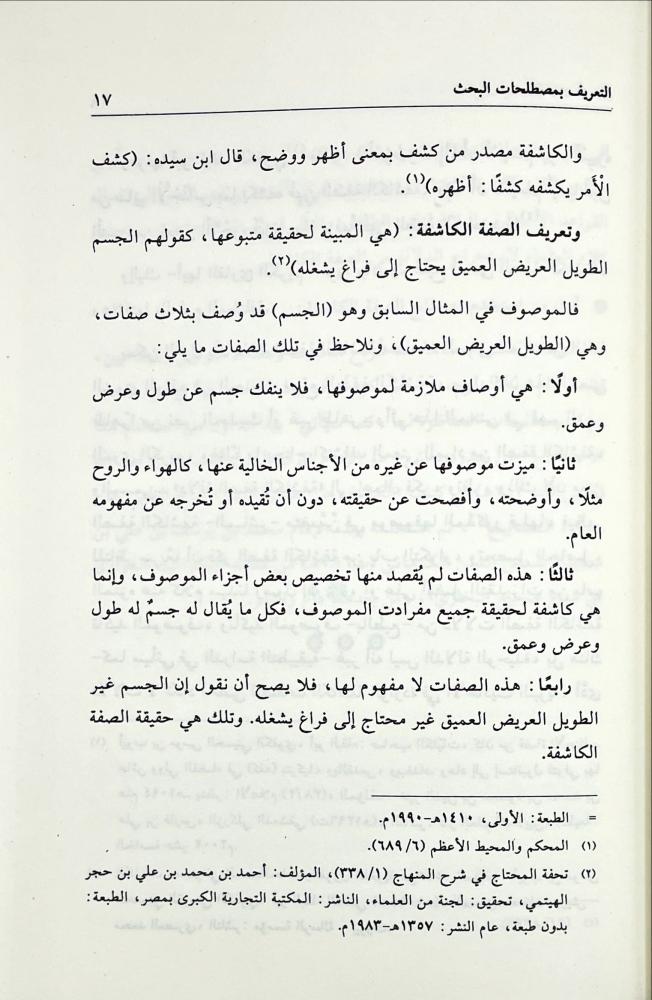 التعريف بمصطلحات البحث
١٧
والكاشفة مصدر من كشف بمعنى أظهر ووضح، قال ابن سيده: (كشف
الْأَمر يكشفه كشفًا: أظهره)(١).
وتعريف الصفة الكاشفة: (هي المبينة لحقيقة متبوعها، كقولهم الجسم
الطويل العريض العميق يحتاج إلى فراغ يشغله)(٢).
فالموصوف في المثال السابق وهو (الجسم) قد وُصف بثلاث صفات،
وهي (الطويل العريض العميق)، ونلاحظ في تلك الصفات ما يلي:
أولًا: هي أوصاف ملازمة لموصوفها، فلا ينفك جسم عن طول وعرض
وعمق.
ثانيًا: ميزت موصوفها عن غيره من الأجناس الخالية عنها، كالهواء والروح
مثلًا، وأوضحته، وأفصحت عن حقيقته، دون أن تُقيده أو تُخرجه عن مفهومه
العام.
ثالثًا: هذه الصفات لم يُقصد منها تخصيص بعض أجزاء الموصوف، وإنما
هي كاشفة لحقيقة جميع مفرادت الموصوف، فكل ما يُقال له جسمٌ له طول
وعرض وعمق.
رابعًا: هذه الصفات لا مفهوم لها، فلا يصح أن نقول إن الجسم غير
الطويل العريض العميق غير محتاج إلى فراغ يشغله. وتلك هي حقيقة الصفة
الكاشفة.
= الطبعة: الأولى، ١٤١٠هـ-١٩٩٠م.
(١) المحكم والمحيط الأعظم (٦/ ٦٨٩).
(٢) تحفة المحتاج في شرح المنهاج (١/ ٣٣٨)، المؤلف: أحمد بن محمد بن علي بن حجر
الهيتمي، تحقيق: لجنة من العلماء، الناشر: المكتبة التجارية الكبرى بمصر، الطبعة:
بدون طبعة، عام النشر: ١٣٥٧هـ-١٩٨٣م.